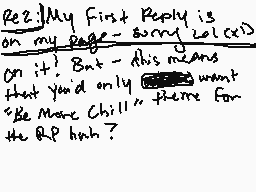 Re2: My First Reply is
on my page - sorry lol (xD)
on it! But - this means
that you'd only want
"Be More Chill" theme for
the RP huh?